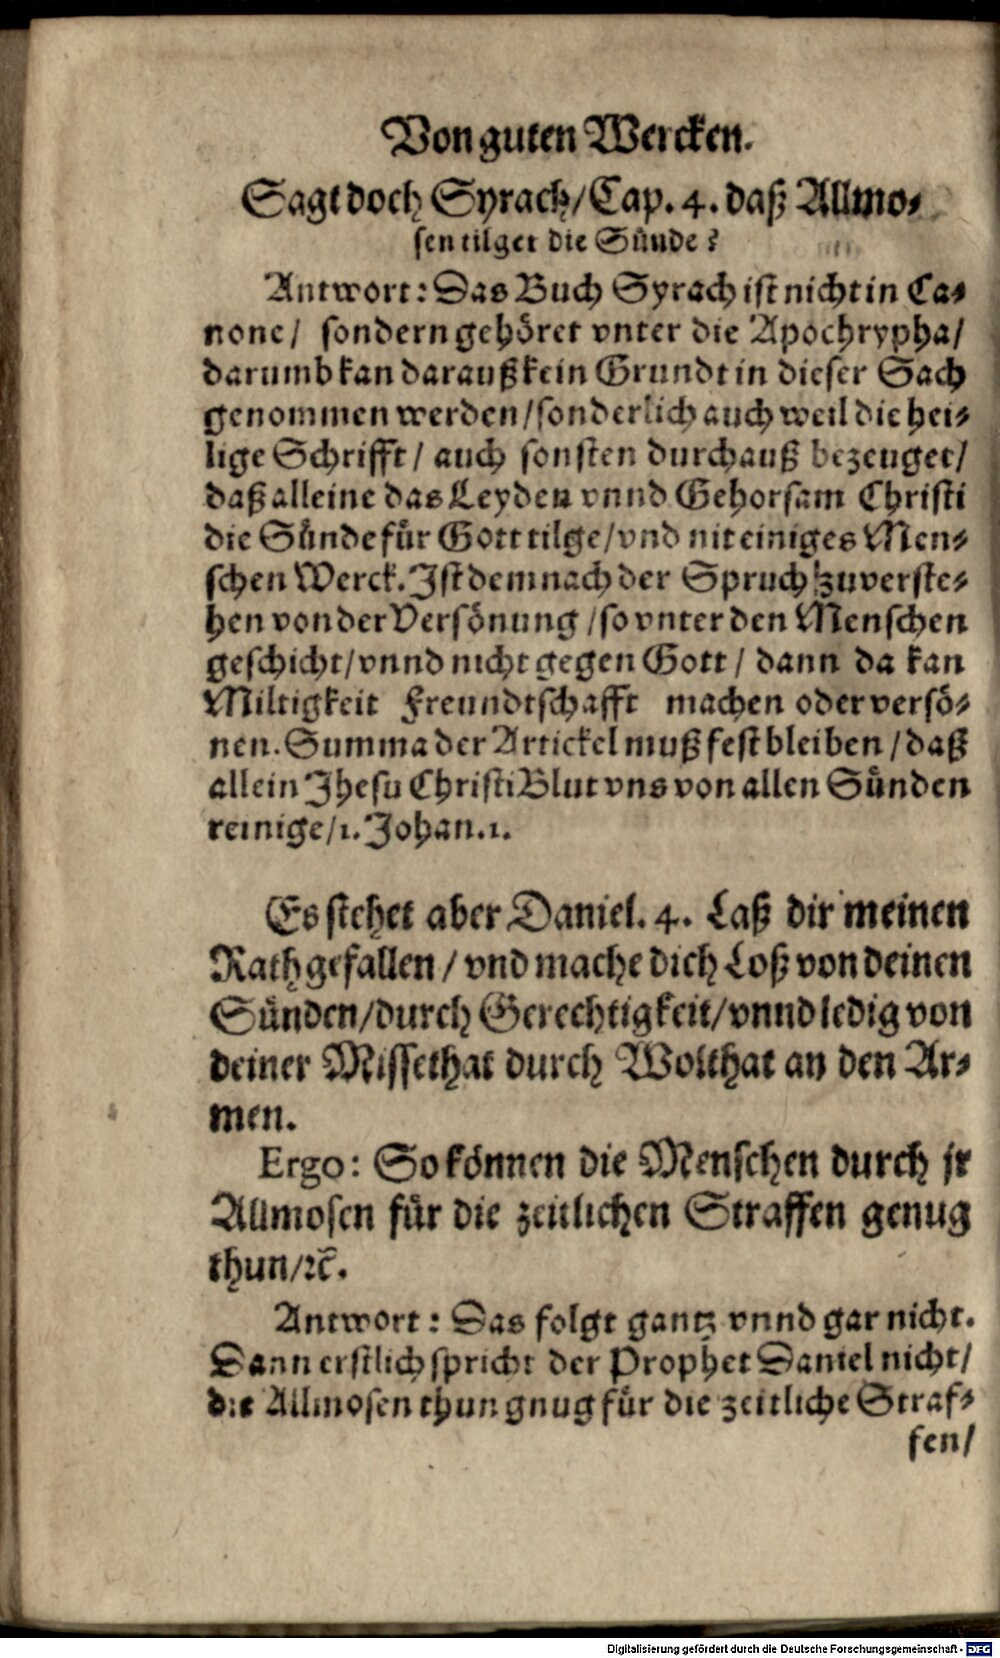 Von guten Wercken.
Sagt doch Syrach/ Cap. 4. daß Allmo-
sen tilget die Sünde?
Antwort: Das Buch Syrach ist nicht in Ca-
none/ sondern gehöret vnter die Apochrypha/
darumb kan darauß kein Grundt in dieser Sach
genommen werden/ sonderlich auch weil die hei-
lige Schrifft/ auch sonsten durchauß bezeuget/
daß alleine das Leyden vnnd Gehorsam Christi
die Sünde für Gott tilge/ vnd nit einiges Men-
schen Werck. Ist demnach der Spruch zuverste-
hen von der Versönung/ so vnter den Menschen
geschicht/ vnnd nicht gegen Gott/ dann da kan
Miltigkeit Freundtschafft machen oder versö-
nen. Summa der Artickel muß fest bleiben/ daß
allein Jhesu Christi Blut vns von allen Sünden
reinige/ 1. Johan. 1.
Es stehet aber Daniel. 4. Laß dir meinen
Rath gefallen/ vnd mache dich Loß von deinen
Sünden/ durch Gerechtigkeit/ vnnd ledig von
deiner Missethat durch Wolthat an den Ar-
men.
Ergo: So können die Menschen durch jr
Allmosen für die zeitlichen Straffen genug
thun/ ꝛc̃.
Antwort: Das folgt gantz vnnd gar nicht.
Dann erstlich spricht der Prophet Daniel nicht/
die Allmosen thun gnug für die zeitliche Straf-
fen/
Digitalisierung gefördert durch die Deutsche Forschungsgemeinschaft - DFG